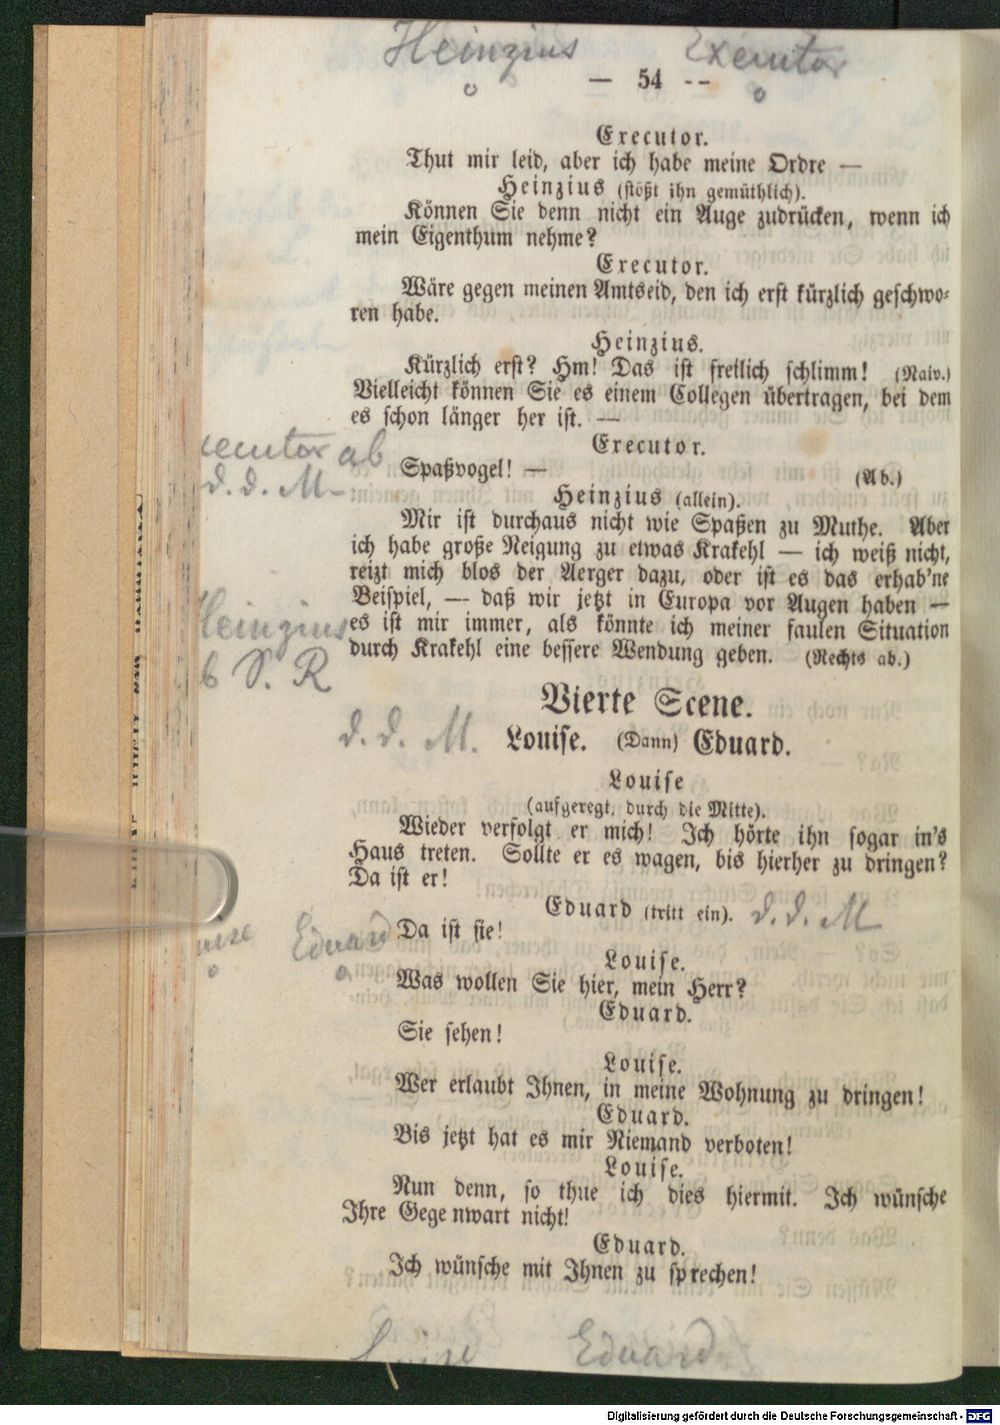 Heinzius Executor
— 54 --
Executor.
Thut mir leid, aber ich habe meine Ordre —
Heinzius (stößt ihn gemüthlich).
Können Sie denn nicht ein Auge zudrücken, wenn ich
mein Eigenthum nehme?
Executor.
Wäre gegen meinen Amtseid, den ich erst kürzlich geschwo-
ren habe.
Heinzius.
Kürzlich erst? Hm! Das ist freilich schlimm! (Naiv.)
Vielleicht können Sie es einem Collegen übertragen, bei dem
es schon länger her ist. —
Executor.
xecutor ab
Spaßvogel! — (Ab.)
d. d. M-
Heinzius (allein).
Mir ist durchaus nicht wie Spaßen zu Muthe. Aber
ich habe große Neigung zu etwas Krakehl — ich weiß nicht,
reizt mich blos der Aerger dazu, oder ist es das erhab'ne
Beispiel, — daß wir jetzt in Europa vor Augen haben —
Heinzius
es ist mir immer, als könnte ich meiner faulen Situation
durch Krakehl eine bessere Wendung geben. (Rechts ab.)
b S. R
Vierte Scene.
d. d. M.
Louise. (Dann) Eduard.
Louise
(aufgeregt, durch die Mitte).
Wieder verfolgt er mich! Ich hörte ihn sogar in's
Haus treten. Sollte er es wagen, bis hierher zu dringen?
Da ist er!
Eduard (tritt ein). d. d. M
uise Eduard
Da ist sie!
Louise.
Was wollen Sie hier, mein Herr?
Eduard.
Sie sehen!
Louise.
Wer erlaubt Ihnen, in meine Wohnung zu dringen!
Eduard.
Bis jetzt hat es mir Niemand verboten!
Louise.
Nun denn, so thue ich dies hiermit. Ich wünsche
Ihre Gegenwart nicht!
Eduard.
Ich wünsche mit Ihnen zu sprechen!
Louise Eduard
Digitalisierung gefördert durch die Deutsche Forschungsgemeinschaft - DFG